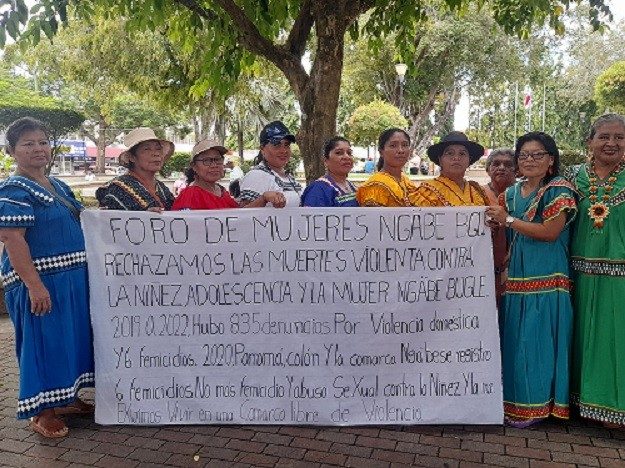 FORO DE MUJERES NGÄBE BUGL
RECHAZAMOS LAS MUERTES VIOLENTA CONTRA
LA NIÑEZ, ADOLESCENCIA Y LA MUJER NGÄBE BUGLE.
2019 a 2022, Hubo 835 denuncias Por Violencia domestica
Y 6 femicidios. 2020, Panamá, colón Y la comarca Ngäbe se registro
6 femicidios. No mas femicidio Y abuso Sexual contra la Niñez Y la
Exigimos Vivir en una Comarca libre de Violencia